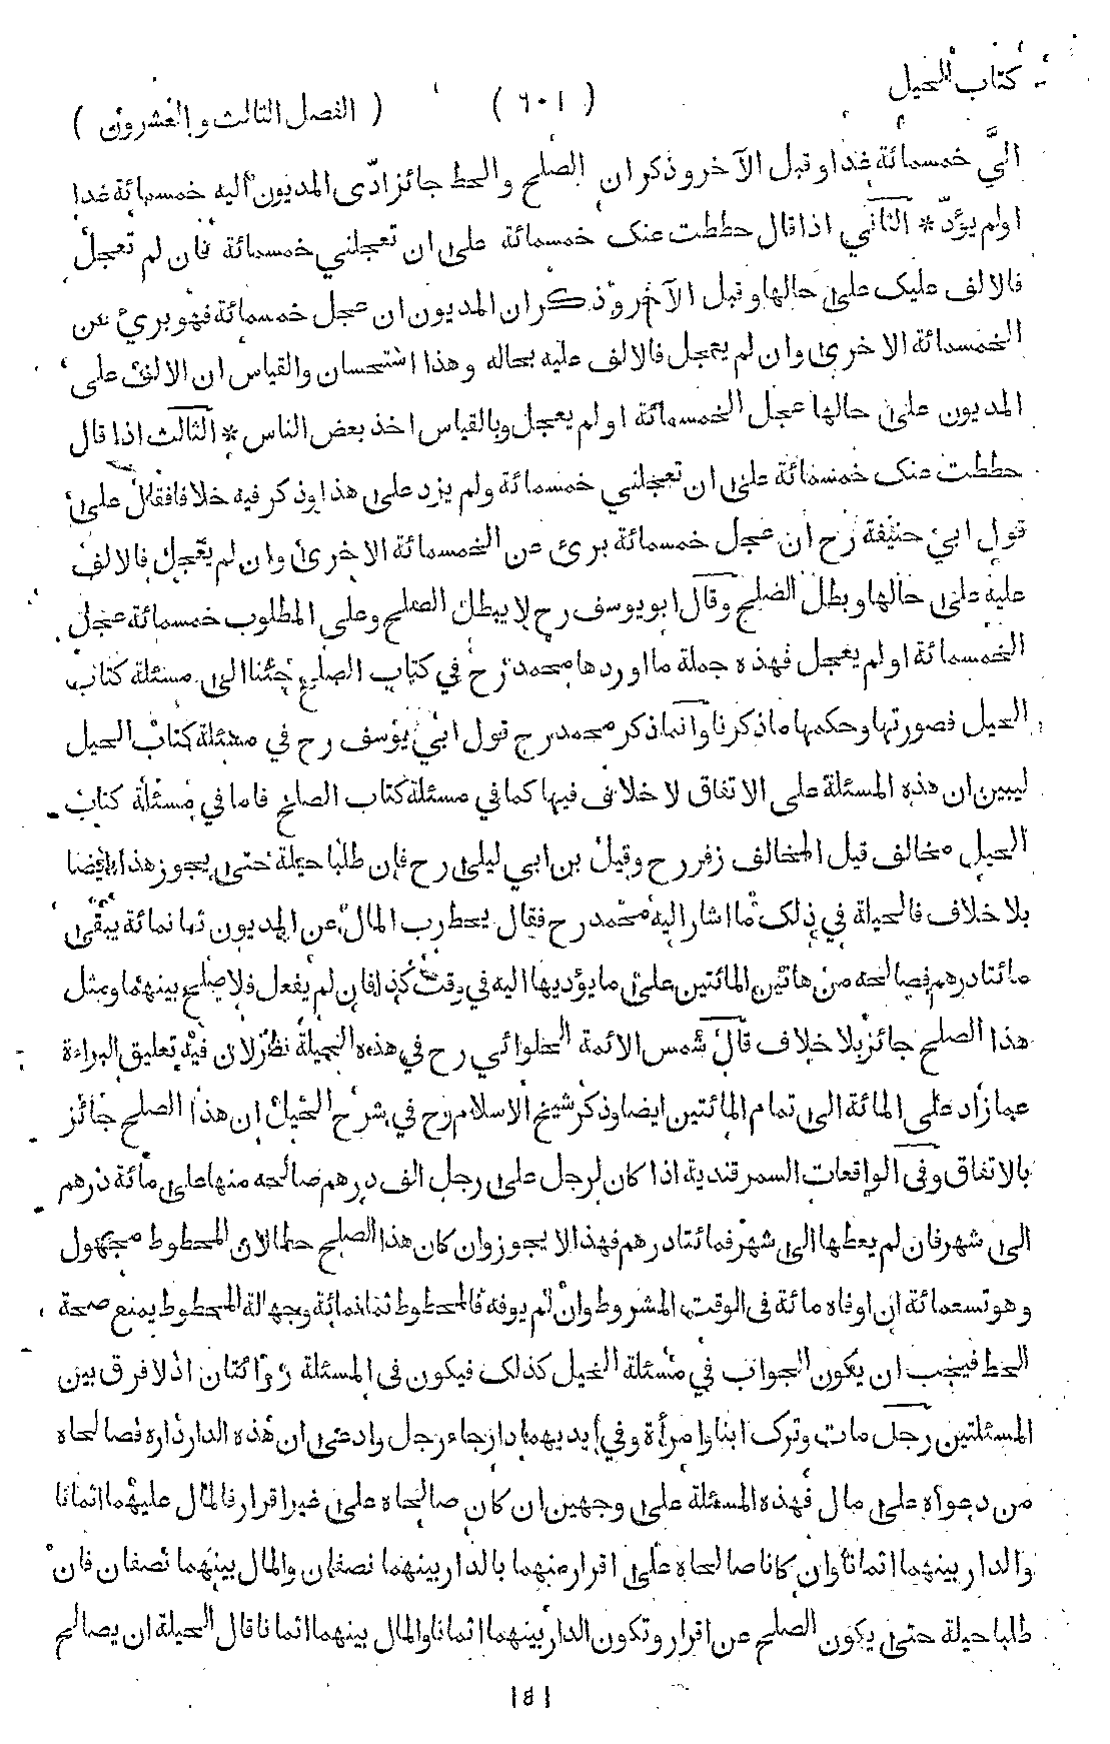 كتاب الحيل
( ٦٠١ )
( الفصل الثالث والعشرون )
الىَّ خمسمائة غدا وقبل الآخر وذكر ان الصلح والحط جائز ادّى المديون اليه خمسمائة غدا
اولم يؤدّ * الثاني اذا قال حططت عنک خمسمائة على ان تعجلني خمسمائة فان لم تعجل
فالالف عليک على حالها وقبل الآخر وذكر ان المديون ان عجل خمسمائة فهو برئ عن
الخمسمائة الاخرى وان لم يعجل فالالف عليه بحاله وهذا استحسان والقياس ان الالف على
المديون على حالها عجل الخمسمائة اولم يعجل وبالقياس اخذ بعض الناس * الثالث اذا قال
حططت عنک خمسمائة على ان تعجلني خمسمائة ولم يزد على هذا وذكر فيه خلافا فقال على
قول ابي حنيفة رح ان عجل خمسمائة برئ عن الخمسمائة الاخرى وان لم يعجل فالالف
عليه على حالها وبطل الصلح وقال ابو يوسف رح لا يبطل الصلح وعلى المطلوب خمسمائة عجل
الخمسمائة اولم يعجل فهذه جملة ما اوردها محمد رح في كتاب الصلح جئنا الى مسئلة كتاب
الحيل فصورتها وحكمها ما ذكرنا وانما ذكر محمد رح قول ابي يوسف رح في مسئلة كتاب الحيل
ليبين ان هذه المسئلة على الاتفاق لا خلاف فيها كما في مسئلة كتاب الصلح فاما في مسئلة كتاب
الحيل مخالف قيل المخالف زفر رح وقيل بن ابي ليلى رح فان طلبا حيلة حتى يجوز هذا ايضا
بلا خلاف فالحيلة في ذلک ما اشار اليه محمد رح فقال يحط رب المال عن المديون ثمانمائة يبقى
مائتا درهم فصالحه من هاتين المائتين على ما يؤديها اليه في وقت كذا فان لم يفعل فلا صلح بينهما ومثل
هذا الصلح جائز بلا خلاف قال شمس الائمة الحلوائي رح في هذه الحيلة نظر لان فيه تعليق البراءة
عما زاد على المائة الى تمام المائتين ايضا وذكر شيخ الاسلام رح في شرح الحيل ان هذا الصلح جائز
بالاتفاق وفى الواقعات السمرقندية اذا كان لرجل على رجل الف درهم صالحه منها على مائة درهم
الى شهر فان لم يعطها الى شهر فمائتا درهم فهذا لا يجوز وان كان هذا الصلح حطا لان المحطوط مجهول
وهو تسعمائة ان اوفاه مائة فى الوقت المشروط وان لم يوفه فالمحطوط ثمانمائة وجهالة المحطوط يمنع صحة
الحط فيجب ان يكون الجواب في مسئلة الحيل كذلک فيكون فى المسئلة روايتان اذ لا فرق بين
المسئلتين رجل مات وترک ابنا وامرأة وفي ايديهما دار جاء رجل وادعى ان هذه الدار داره فصالحاه
من دعواه على مال فهذه المسئلة على وجهين ان كان صالحاه على غير اقرار فالمال عليهما اثمانا
والدار بينهما اثمانا وان كانا صالحاه على اقرار منهما بالدار بينهما نصفان والمال بينهما نصفان فان
طلبا حيلة حتى يكون الصلح عن اقرار وتكون الدار بينهما اثمانا والمال بينهما اثمانا قال الحيلة ان يصالح
١٥١